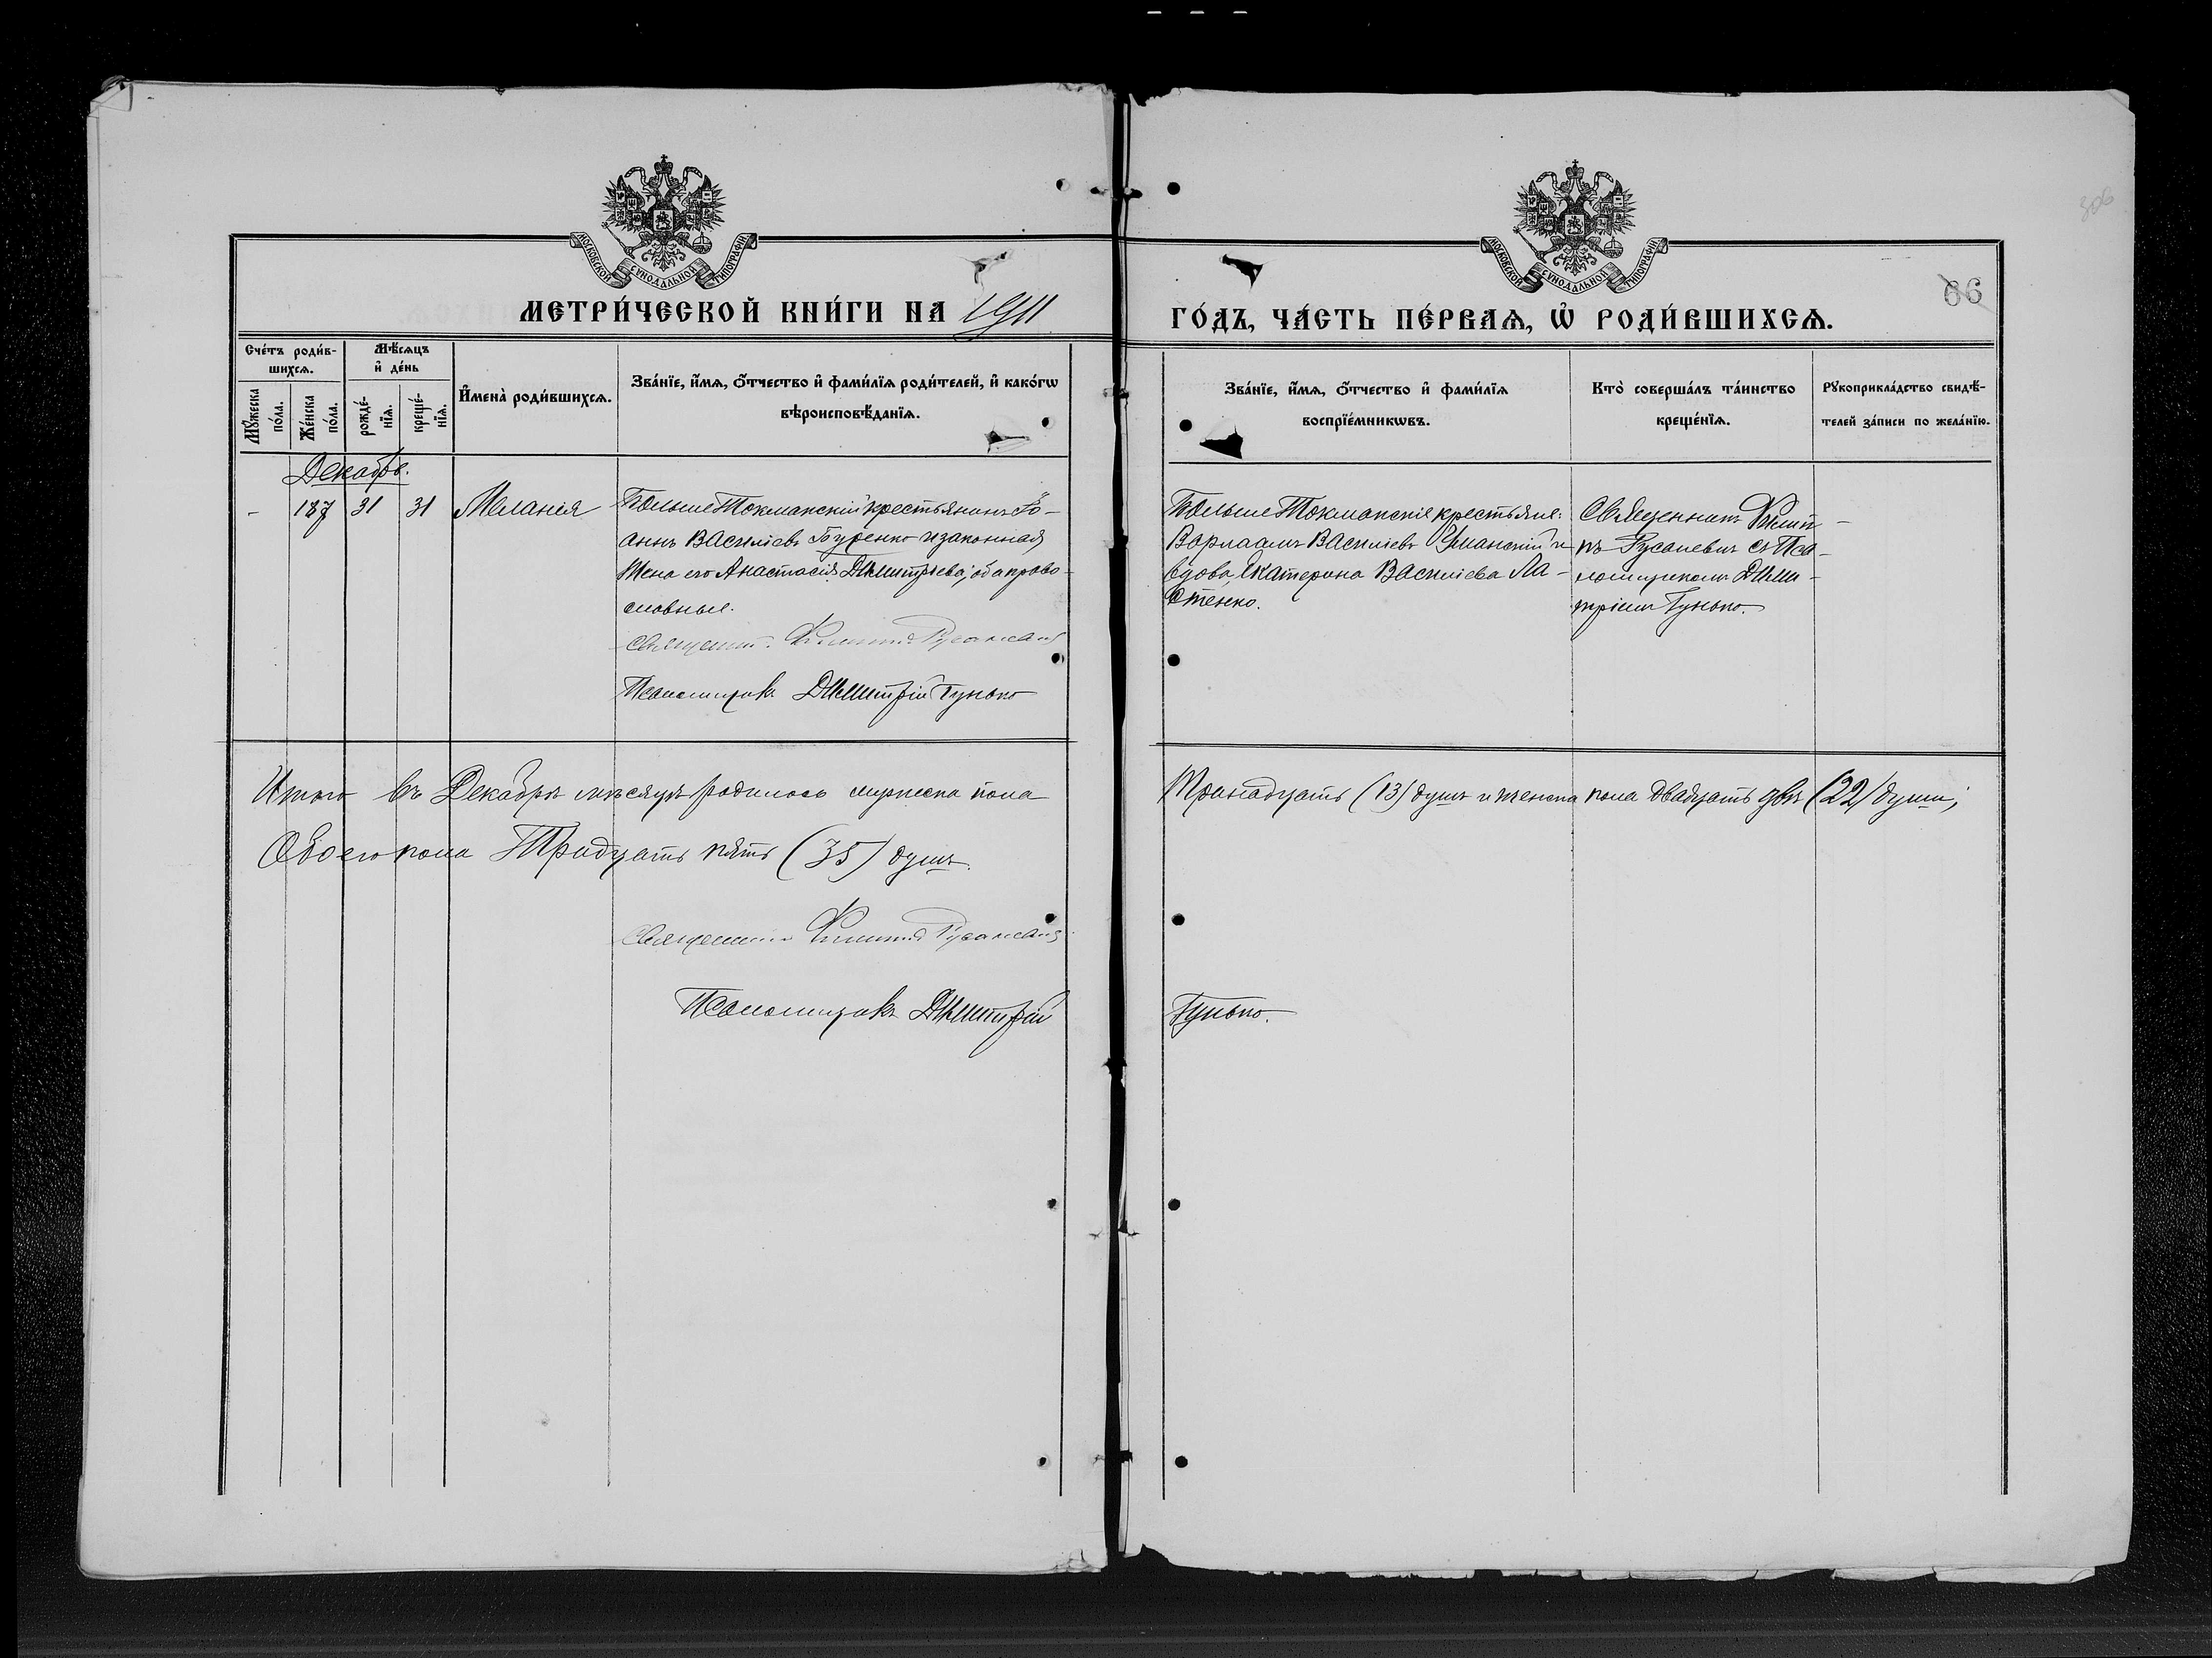 306
МОСКОВСКОЙ СѴНОДАЛЬНОЙ ТИПОГРАФІИ
МОСКОВСКОЙ СѴНОДАЛЬНОЙ ТИПОГРАФІИ
66
МЕТРИ́ЧЕСКОЙ КНИ́ГИ НА 1911
ГО́ДЪ, ЧА́СТЬ ПЕ́РВАѦ, Ѡ҆ РОДИ́ВШИХСѦ.
Сче́тъ роди́в-
шихсѧ.
Мꙋ́жеска
по́ла.
Же́нска
по́ла.
Мѣ́сѧцъ
и҆ де́нь
рожде́-
нїѧ.
креще́-
нїѧ.
И҆мена̀ роди́вшихсѧ.
Зва́нїе, и҆́мѧ, ѻ҆́тчество и҆ фами́лїѧ роди́телей, и҆ како́гѡ
вѣроисповѣ́данїѧ.
Зва́нїе, и҆́мѧ, ѻ҆́тчество и҆ фами́лїѧ
воспрїе́мникѡвъ.
Кто̀ соверша́лъ та́инство
креще́нїѧ.
Рꙋкоприкла́дство свидѣ́-
телей за́писи по жела́нїю.
Декабрь.
-
187
31
31
Меланія
Больше Токмакскій крестьянинъ Іо-
аннъ Василіевъ и законная
жена его Анастасія Димитріева, оба право-
славные.
Священ. Филиппъ Русаневичъ
Псаломщикъ Димитрій Гунько
Больше Токмакскіе крестьяне:
Варлаамъ Василіевъ Уманскій и
вдова Екатерина Василіева Ла-
стенко.
Священникъ Филип-
пъ Русаневич съ Пса-
ломщикомъ Дими-
тріемъ Гунько.
Итого въ Декабрѣ мѣсяцѣ родилось мужеска пола
Тринадцать (13) душъ и женска пола двадцать двѣ (22) души;
Обоего пола Тридцать пять (35) душъ.
Священник Филиппъ Русаневичъ
Псаломщикъ Димитрій
Гунько.